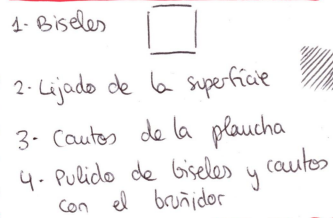 1- Biseles
2- Lijado de la superficie
3- Cantos de la plancha
4- Pulido de biseles y cantos
con el bruñidor